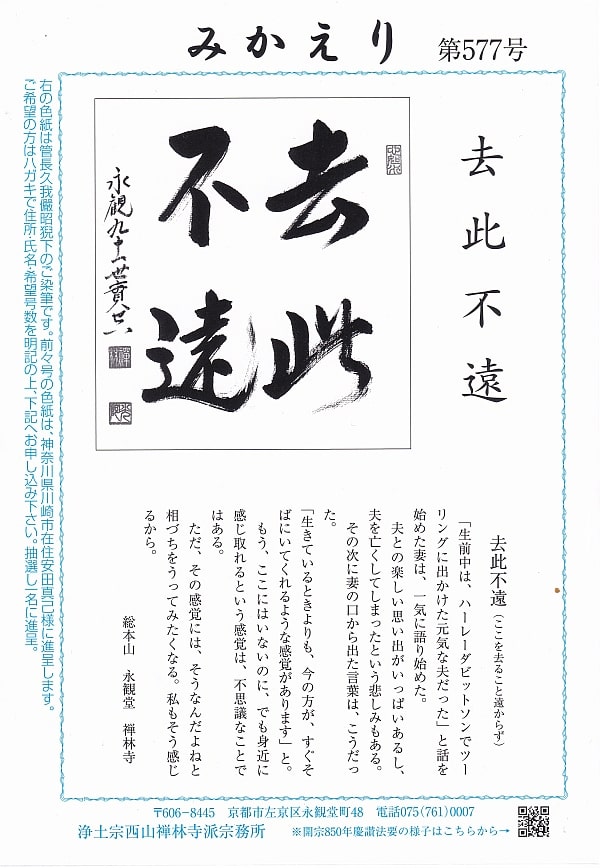 みかえり 第577号
去此不遠
去此
不遠
永観九十一世
去此不遠（ここを去ること遠からず）
「生前中は、ハーレーダビットソンでツー
リングに出かけた元気な夫だった」と話を
始めた妻は、一気に語り始めた。
夫との楽しい思い出がいっぱいあるし、
夫を亡くしてしまったという悲しみもある。
その次に妻の口から出た言葉は、こうだっ
た。
「生きているときよりも、今の方が、すぐそ
ばにいてくれるような感覚があります」と。
もう、ここにはいないのに、でも身近に
感じ取れるという感覚は、不思議なことで
はある。
ただ、その感覚には、そうなんだよねと
相づちをうってみたくなる。私もそう感じ
るから。
総本山 永観堂 禅林寺
右の色紙は管長久我儼昭猊下のご染筆です。前々号の色紙は、神奈川県川崎市在住安田真己様に進呈します。
ご希望の方はハガキで住所・氏名・希望号数を明記の上、下記へお申し込み下さい。抽選し一名に進呈。
〒606-8445 京都市左京区永観堂町48 電話075(761)0007
浄土宗西山禅林寺派宗務所 ※開宗850年慶讃法要の様子はこちらから→